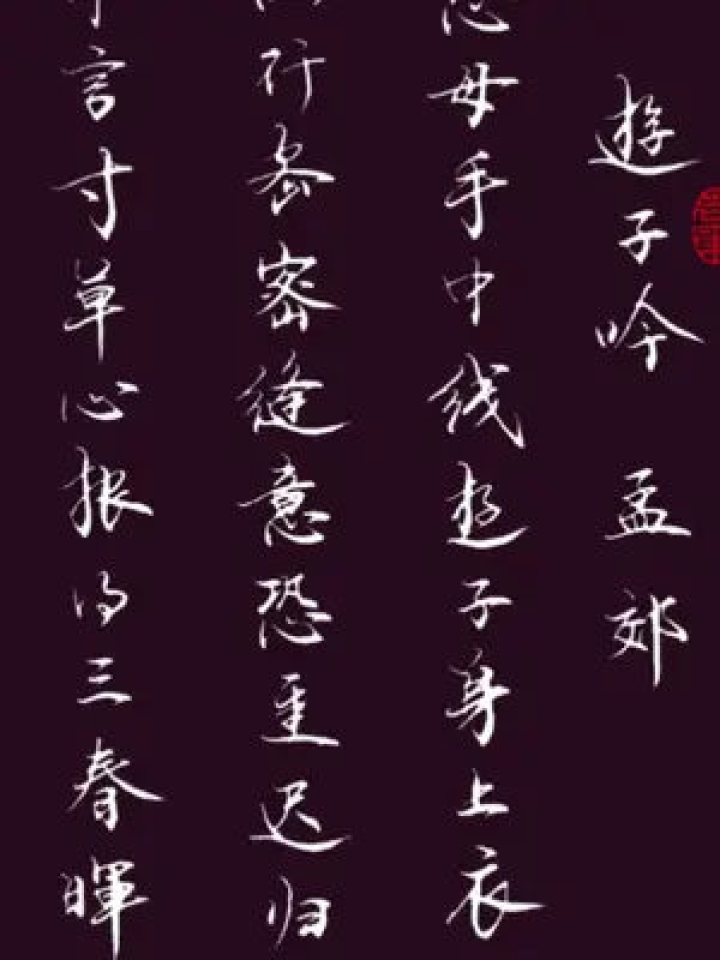 遊子吟 孟郊
母手中线遊子身上衣
行密密缝意恐迟迟归
言寸草心报得三春暉